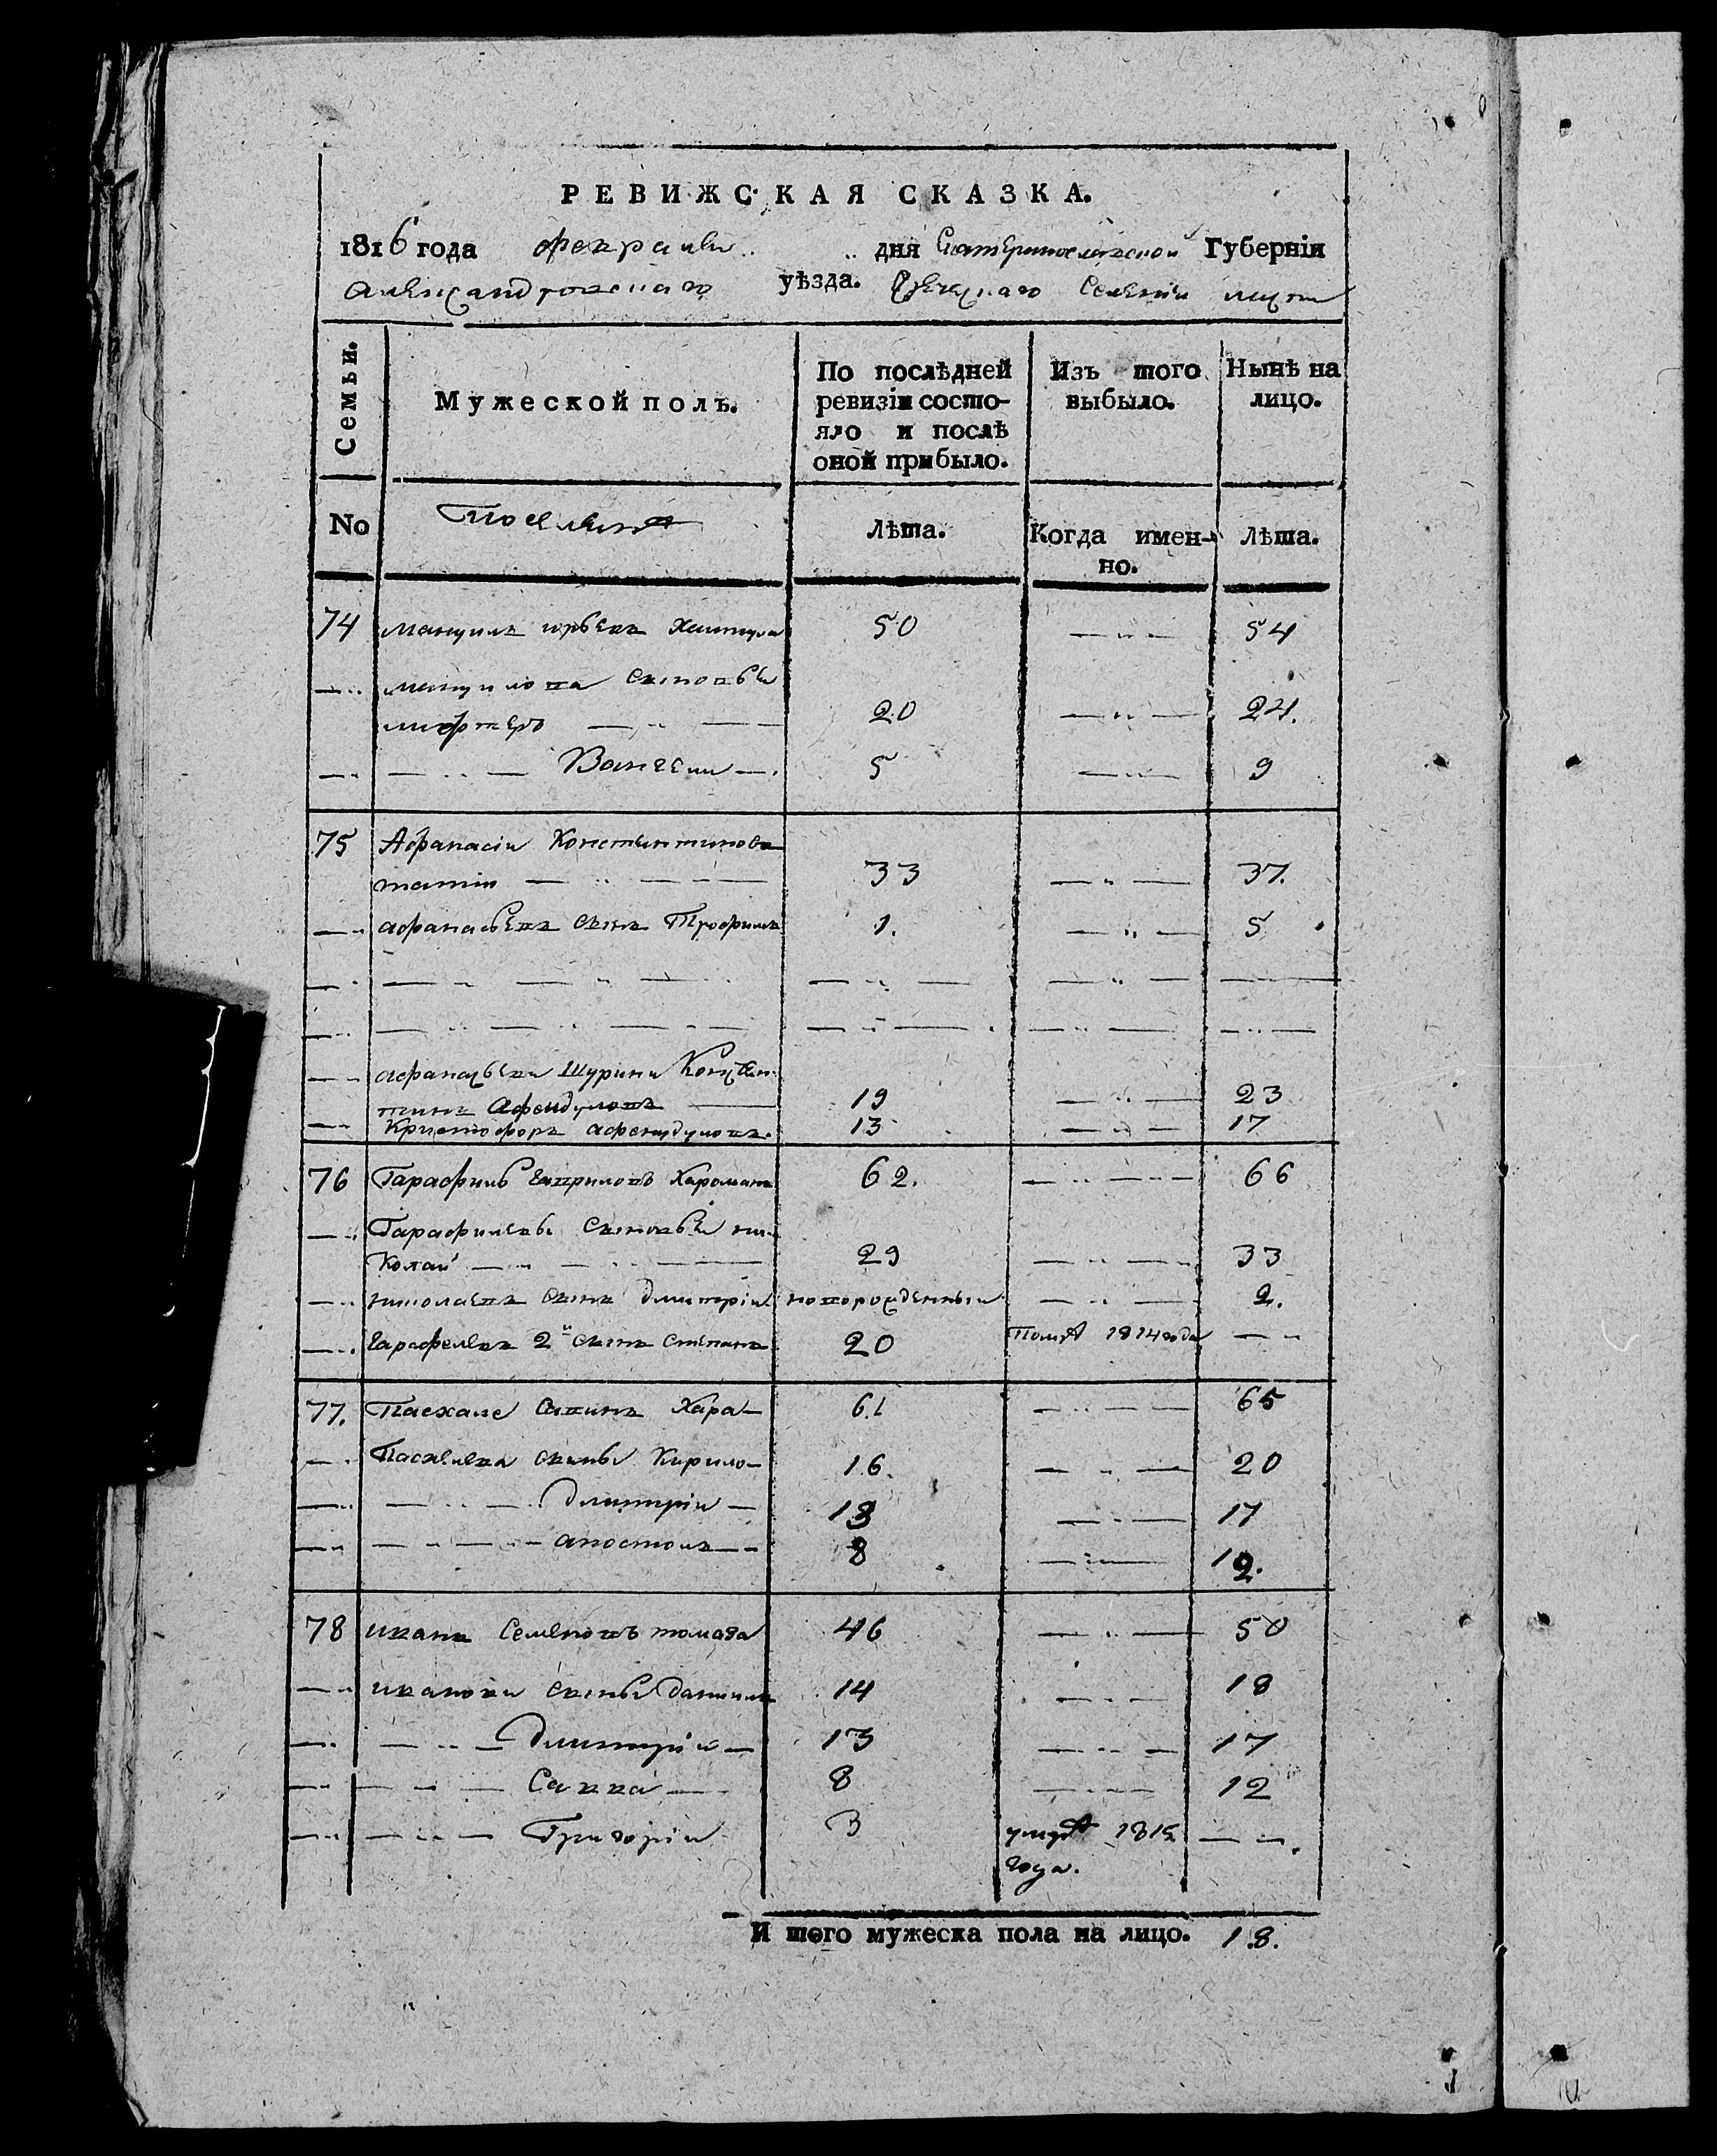 РЕВИЖСКАЯ СКАЗКА.
1816 года февраля дня Екатеринославской Губерніи
Александровскаго уѣзда. Греческаго Селенія
Семьи.
Мужеской полъ.
По послѣдней ревизіи состояло и послѣ оной прибыло.
Изъ того выбыло.
Нынѣ на лицо.
No
Лѣта.
Когда именно.
Лѣта.
74 Мануилъ юрьевъ 50 54
мануилова сыновья
20 24.
5 9
75 Афанасіи Константиновъ
33 37.
афанасьевъ сынъ Трофимъ 1. 5
афанасьева Шурины Констан-
тинъ Афендуловъ 19 23
Кристофоръ афендуловъ. 13 17
76 Гаврилов Хароманъ 62. 66
сыновья ни-
колай 29 33
николаевъ сынъ дмитріи новорожденныи 2.
2й сынъ степанъ 20 1814 года
77. Пасхале Савинъ Хара 61 65
сыны Кирило 16. 20
дмитріи 13 17
апостолъ 8 12.
78 иванъ Семеновъ томаза 46 50
иванови сыны даниилъ 14 18
дмитріи 13 17
Савва 8 12
Григоріи 3 умре 1815
года.
И того мужеска пола на лицо. 18.